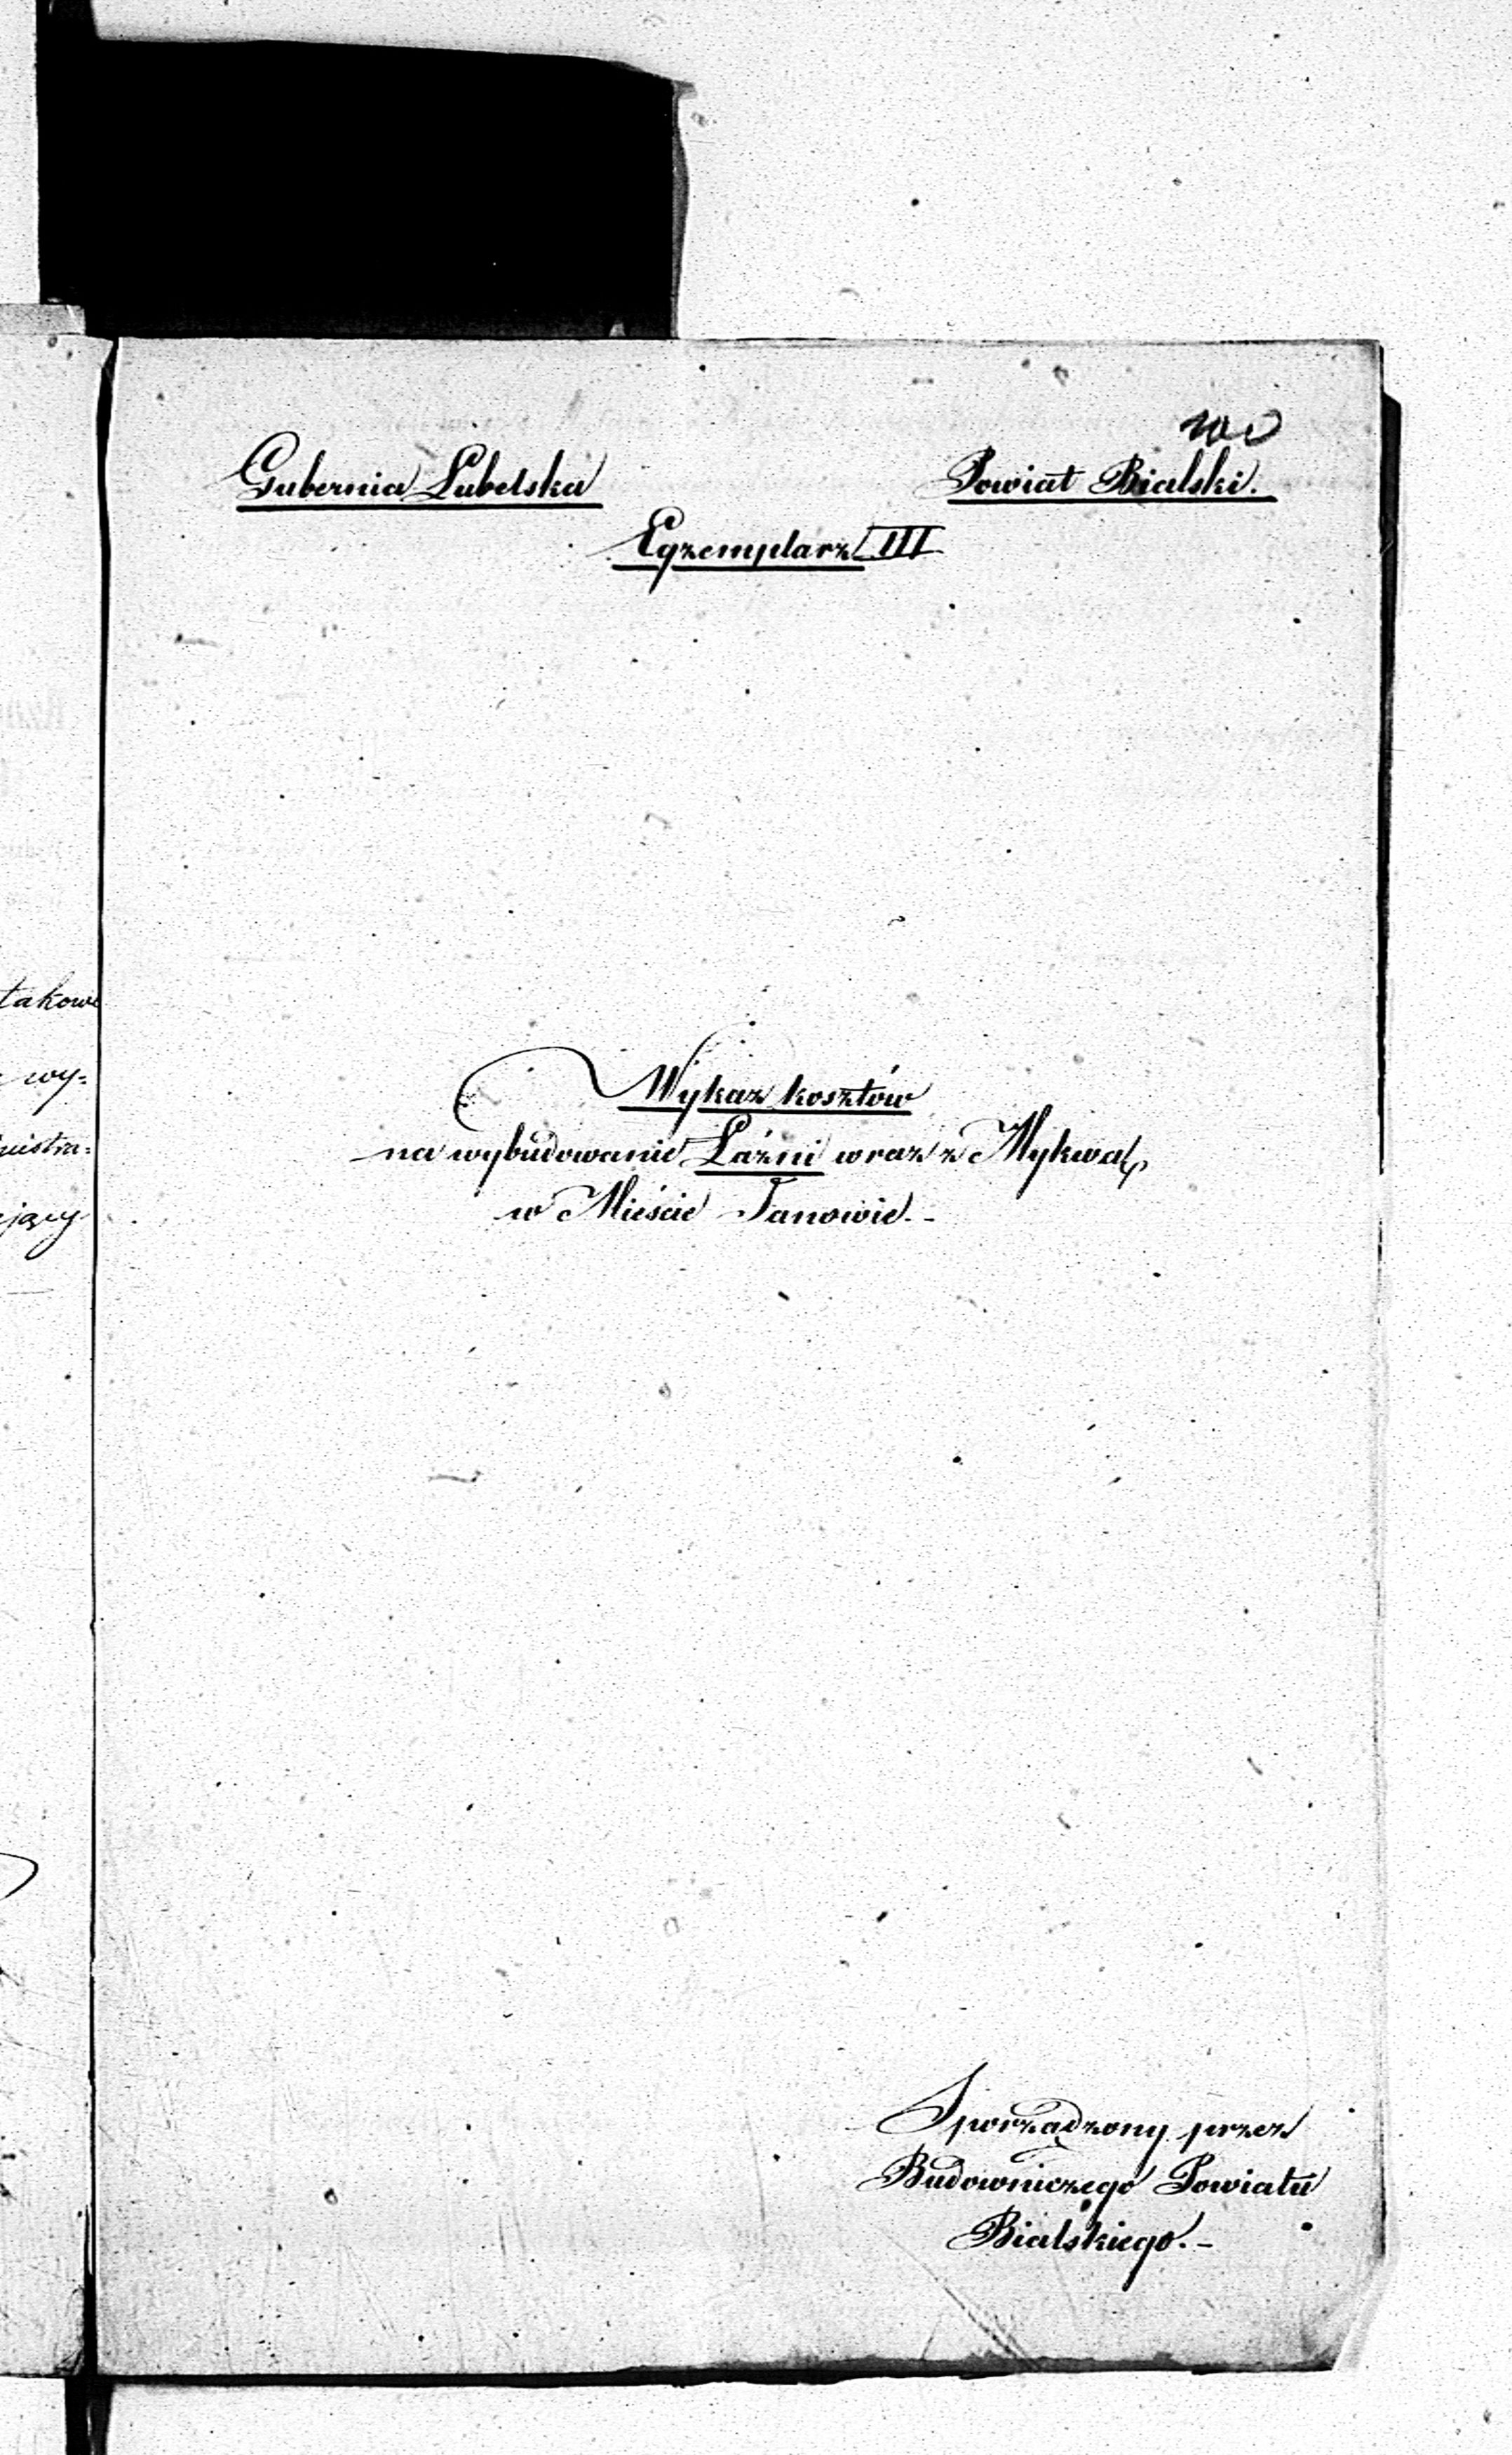 Gubernia Lubelska
Powiat Bialski.
Egzemplarz III
Wykaz kosztów
na wybudowanie Łaźni wraz z Mykwą
w Mieście Janowie.-
Sporządzony przez
Budowniczego Powiatu
Bialskiego.-
takowe
wy=
nistra=
jący